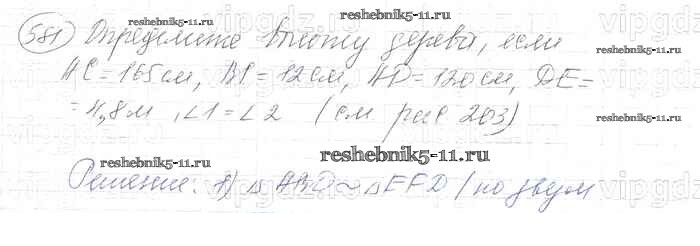 reshebnik5-11.ru
581 Определите высоту дерева, если
reshebnik5-11.ru
AC = 165 см, BC = 12 см, AD = 120 см, DE =
= 4,8 м, ∠1 = ∠2 (см рис 203)
reshebnik5-11.ru
reshebnik5-11.ru
reshebnik5-11.ru
Решение: 1) △ABD ~ △EFD (по двум
vipgdz